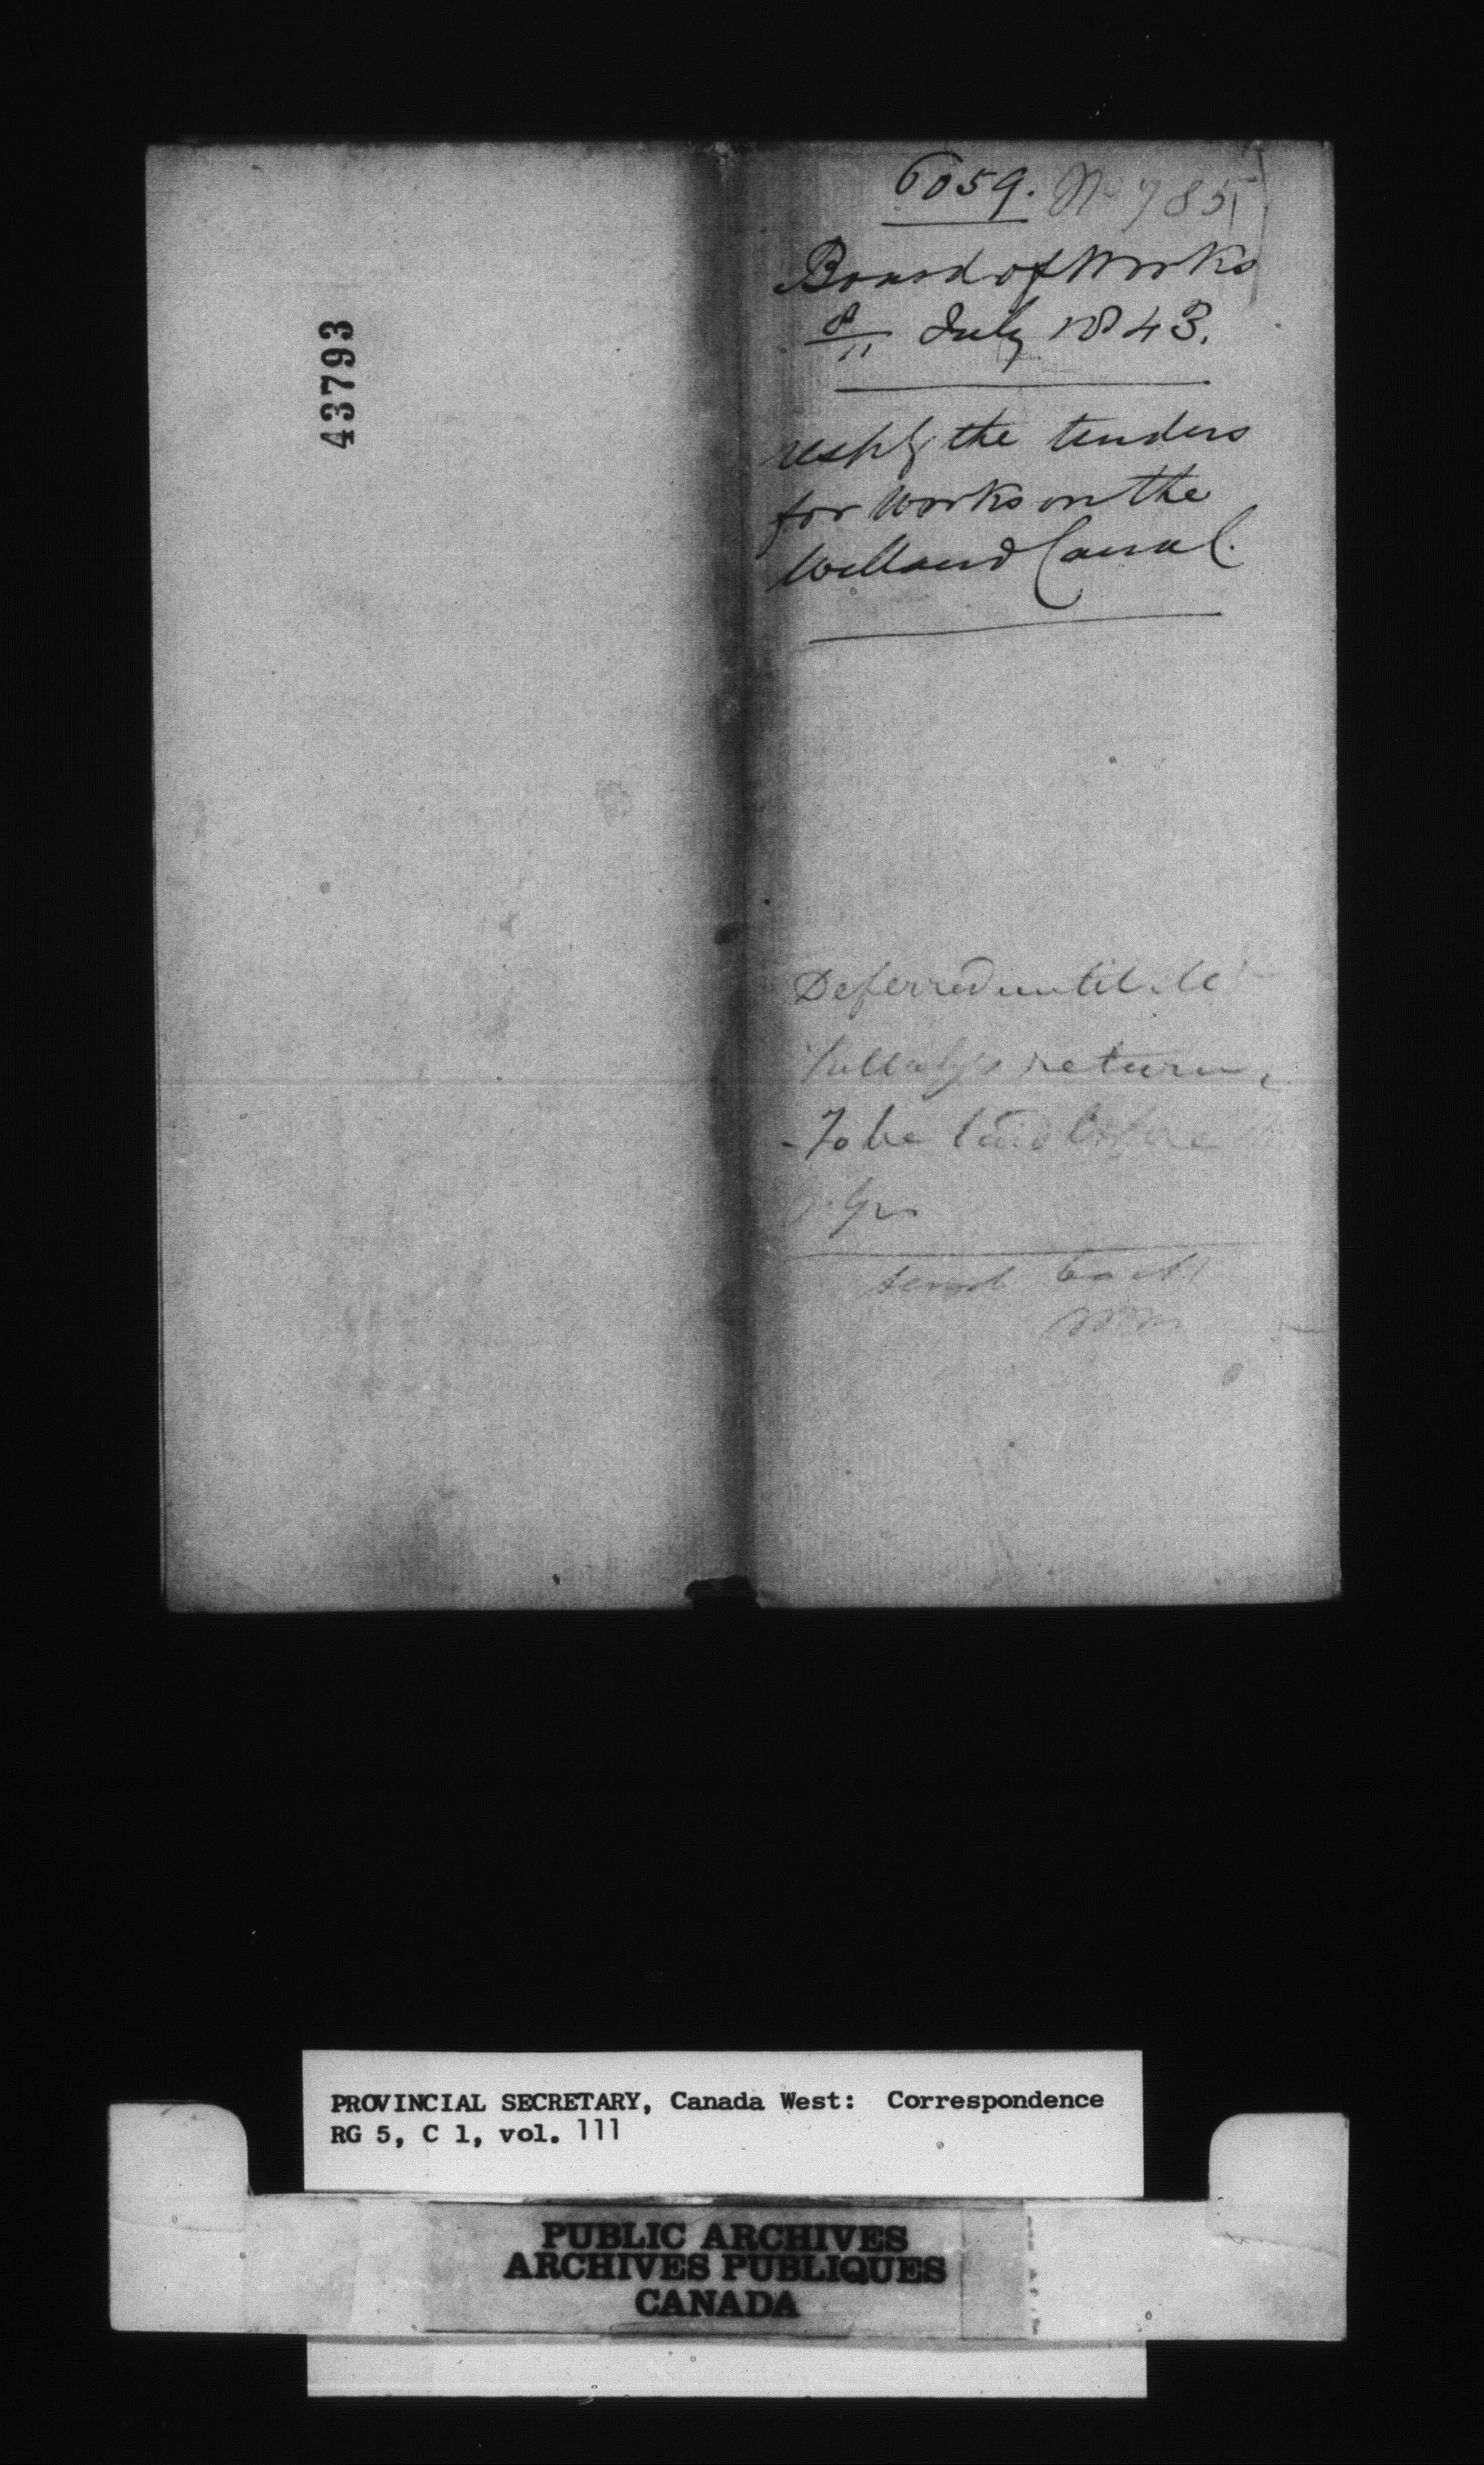 43793
6059. No 785
Board of Works
8/11 July 1843.
respg the tenders
for Works on the
Welland Canal.
Deferred until Mr
Killaly's return,
- To be laid before
send back
PROVINCIAL SECRETARY, Canada West: Correspondence
RG 5, C 1, vol. 111
PUBLIC ARCHIVES
ARCHIVES PUBLIQUES
CANADA